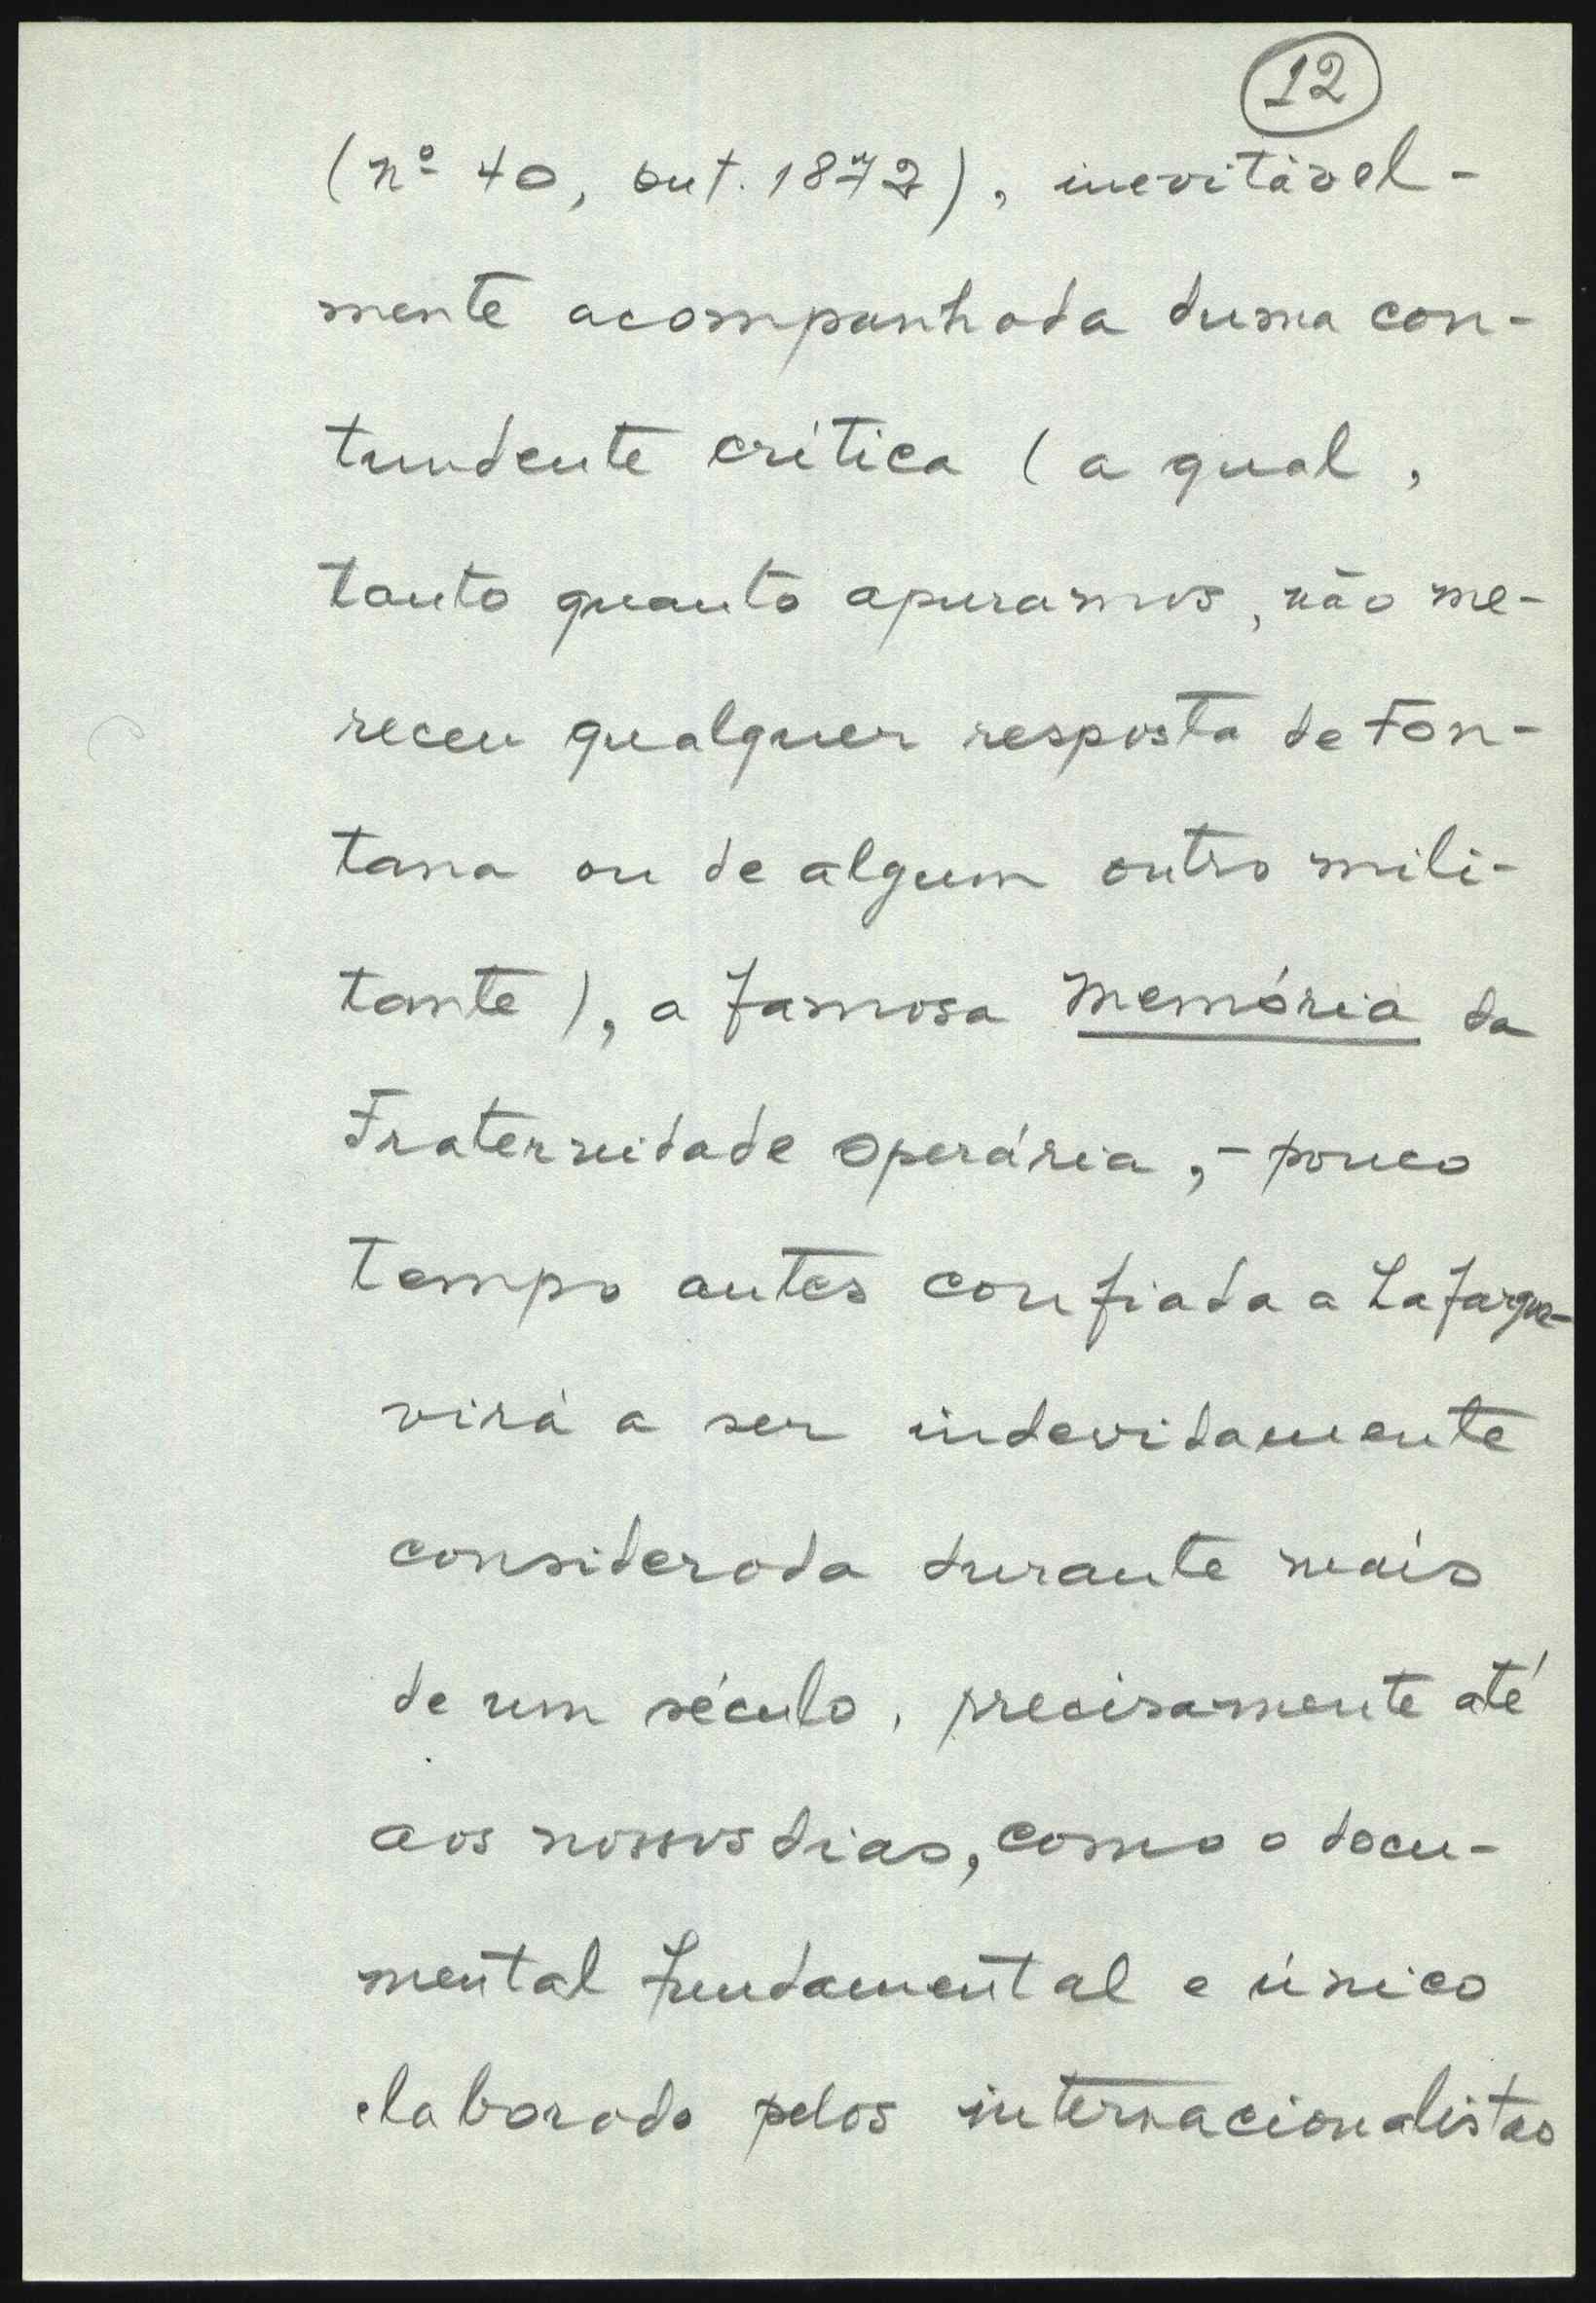 12
(nº 40, out. 1872), inevitável-
mente acompanhada duma con-
tundente crítica (a qual,
tanto quanto apuramos, não me-
receu qualquer resposta de Fon-
tana ou de algum outro mili-
tante), a famosa Memória da
Fraternidade Operária, - pouco
tempo antes confiada a Lafargue-
virá a ser indevidamente
considerada durante mais
de um século, precisamente até
aos nossos dias, como o docu-
mental fundamental e único
elaborado pelos internacionalistas